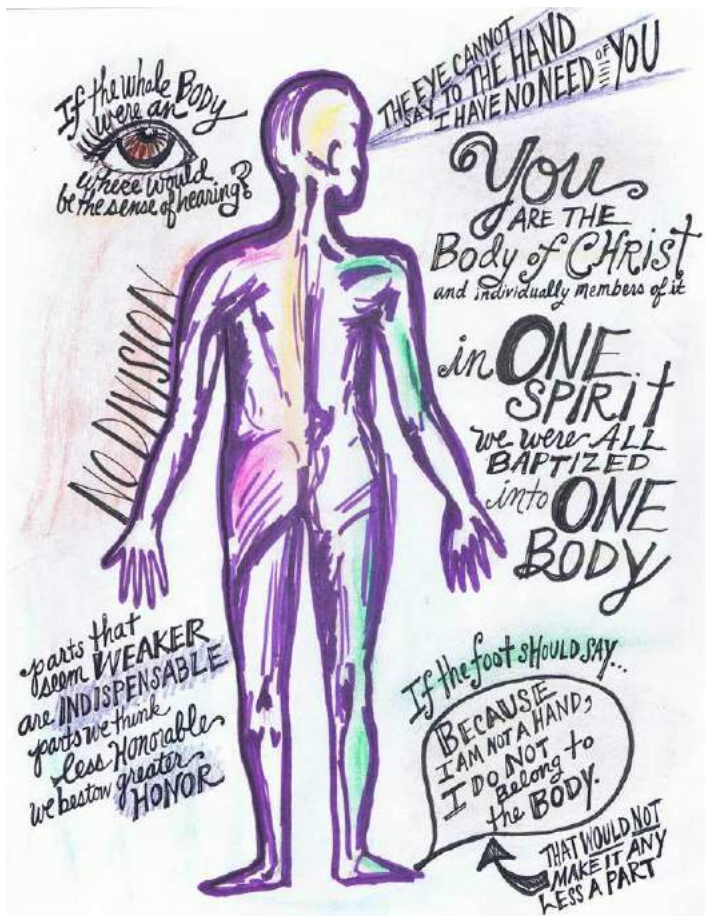 If the whole BODY
were an
where would
be the sense of hearing?
THE EYE CANNOT
SAY TO THE HAND
I HAVE NO NEED OF YOU
You
ARE THE
Body of CHRIST
and individually members of it
in ONE
SPIRIT
we were ALL
BAPTIZED
into ONE
BODY
NO DIVISION
parts that
seem WEAKER
are INDISPENSABLE
parts we think
less Honorable
we bestow greater
HONOR
If the foot SHOULD SAY...
BECAUSE
I AM NOT A HAND,
I DO NOT
Belong to
the BODY.
THAT WOULD NOT
MAKE IT ANY
LESS A PART